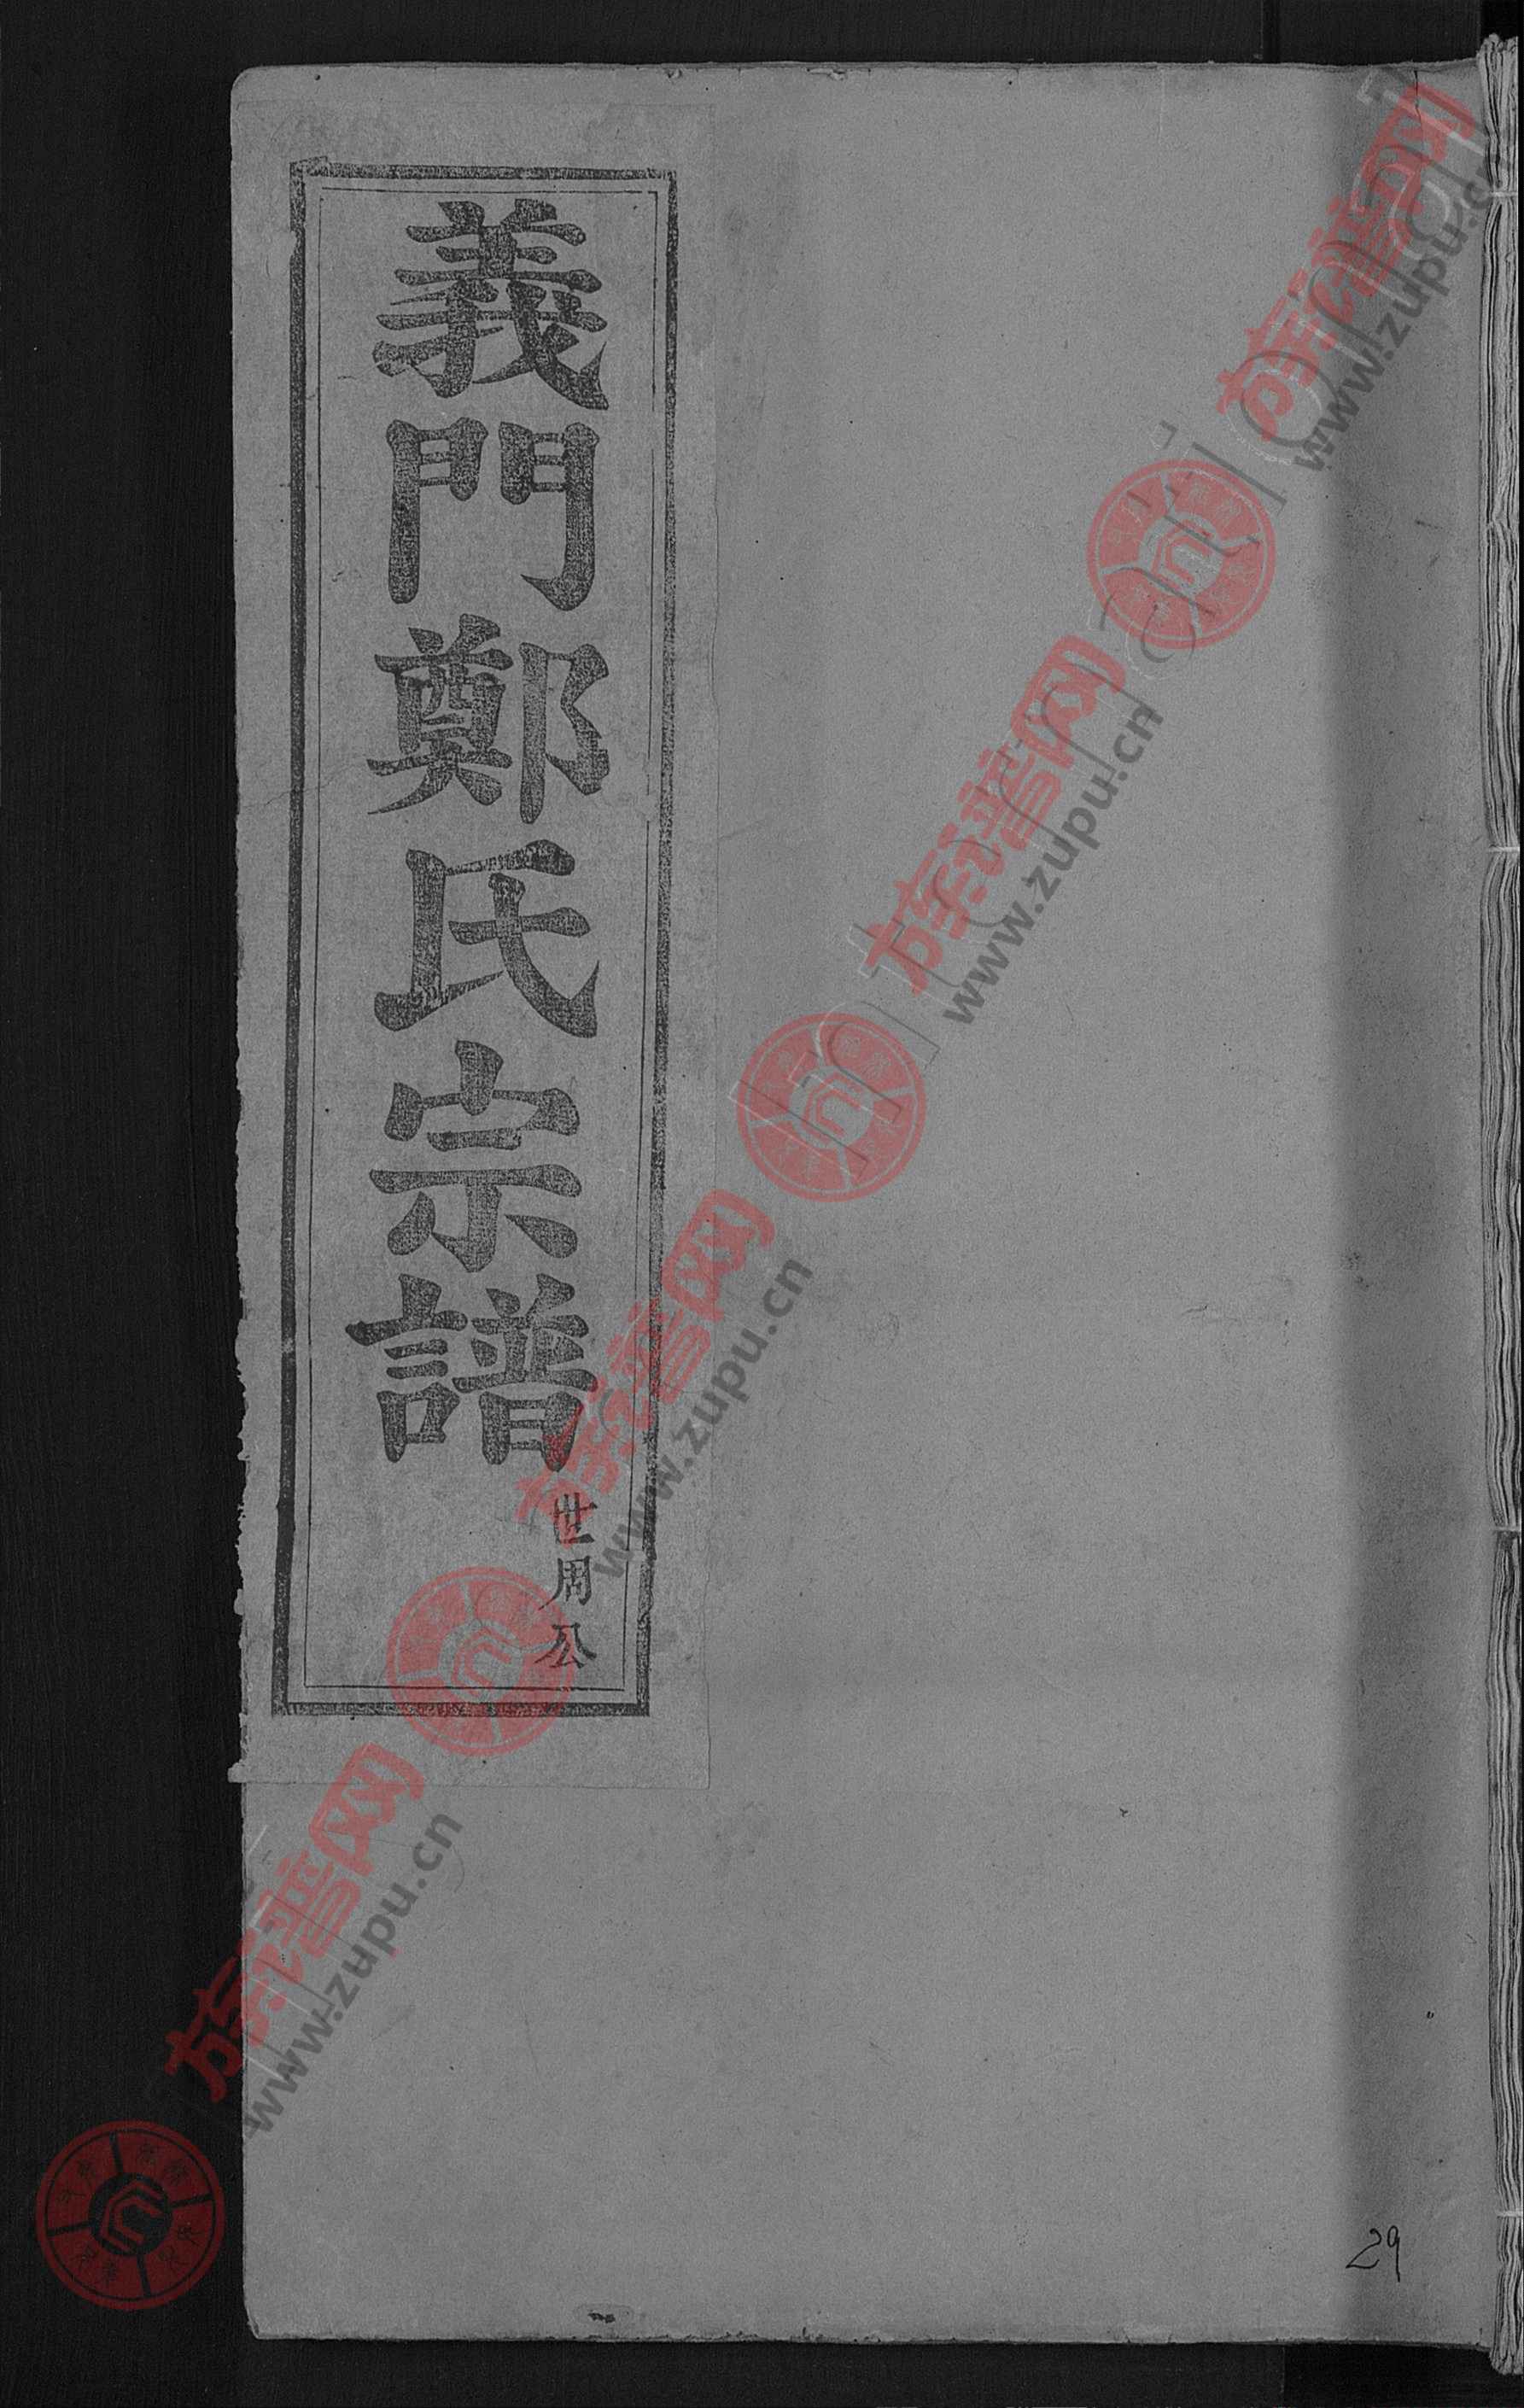 義門鄭氏宗譜
世周公
29
族譜网
www.zupu.cn
族譜网
www.zupu.cn
族譜网
www.zupu.cn
族譜网
www.zupu.cn